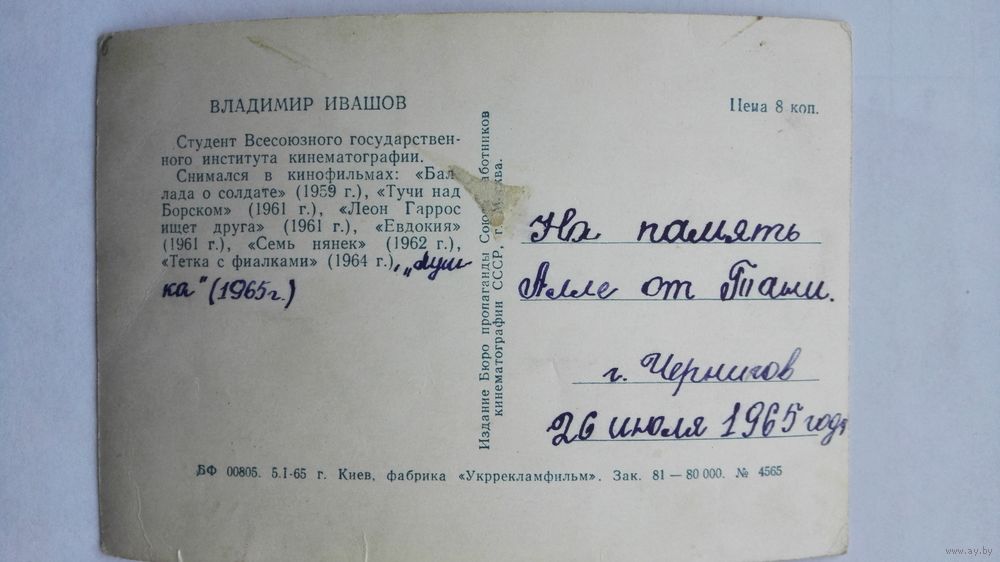 ВЛАДИМИР ИВАШОВ
Студент Всесоюзного государствен-
ного института кинематографии.
Снимался в кинофильмах: «Бал
лада о солдате» (1959 г.), «Тучи над
Борском» (1961 г.), «Леон Гаррос
ищет друга» (1961 г.), «Евдокия»
(1961 г.), «Семь нянек» (1962 г.),
«Тетка с фиалками» (1964 г.),
ка" (1965 г.)
Издание Бюро пропаганды Союз аботников
кинематографии СССР, г. М ква.
Цена 8 коп.
На память
Алле от Тани.
г. Чернигов
26 июля 1965 года
БФ 00805. 5.I-65 г. Киев, фабрика «Укррекламфильм». Зак. 81 — 80 000. № 4565
www.ay.by